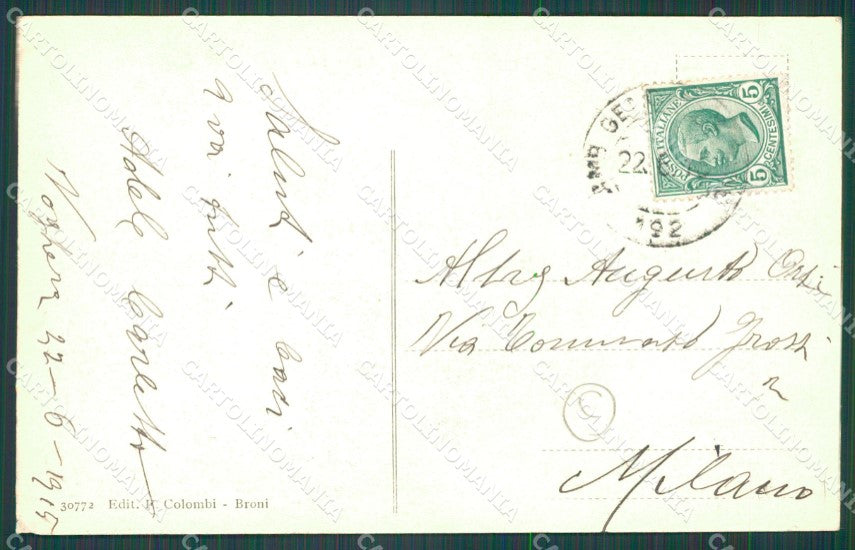 Saluti e baci
a voi tutti
Adele Carletti
Voghera 22-6-1915
30772 Edit. F. Colombi - Broni
AMB GE
22.
192
POSTE ITALIANE
CENTESIMI
5
5
Augusto
Via Tommaso Grossi
C
Milano
CARTOLINOMANIA